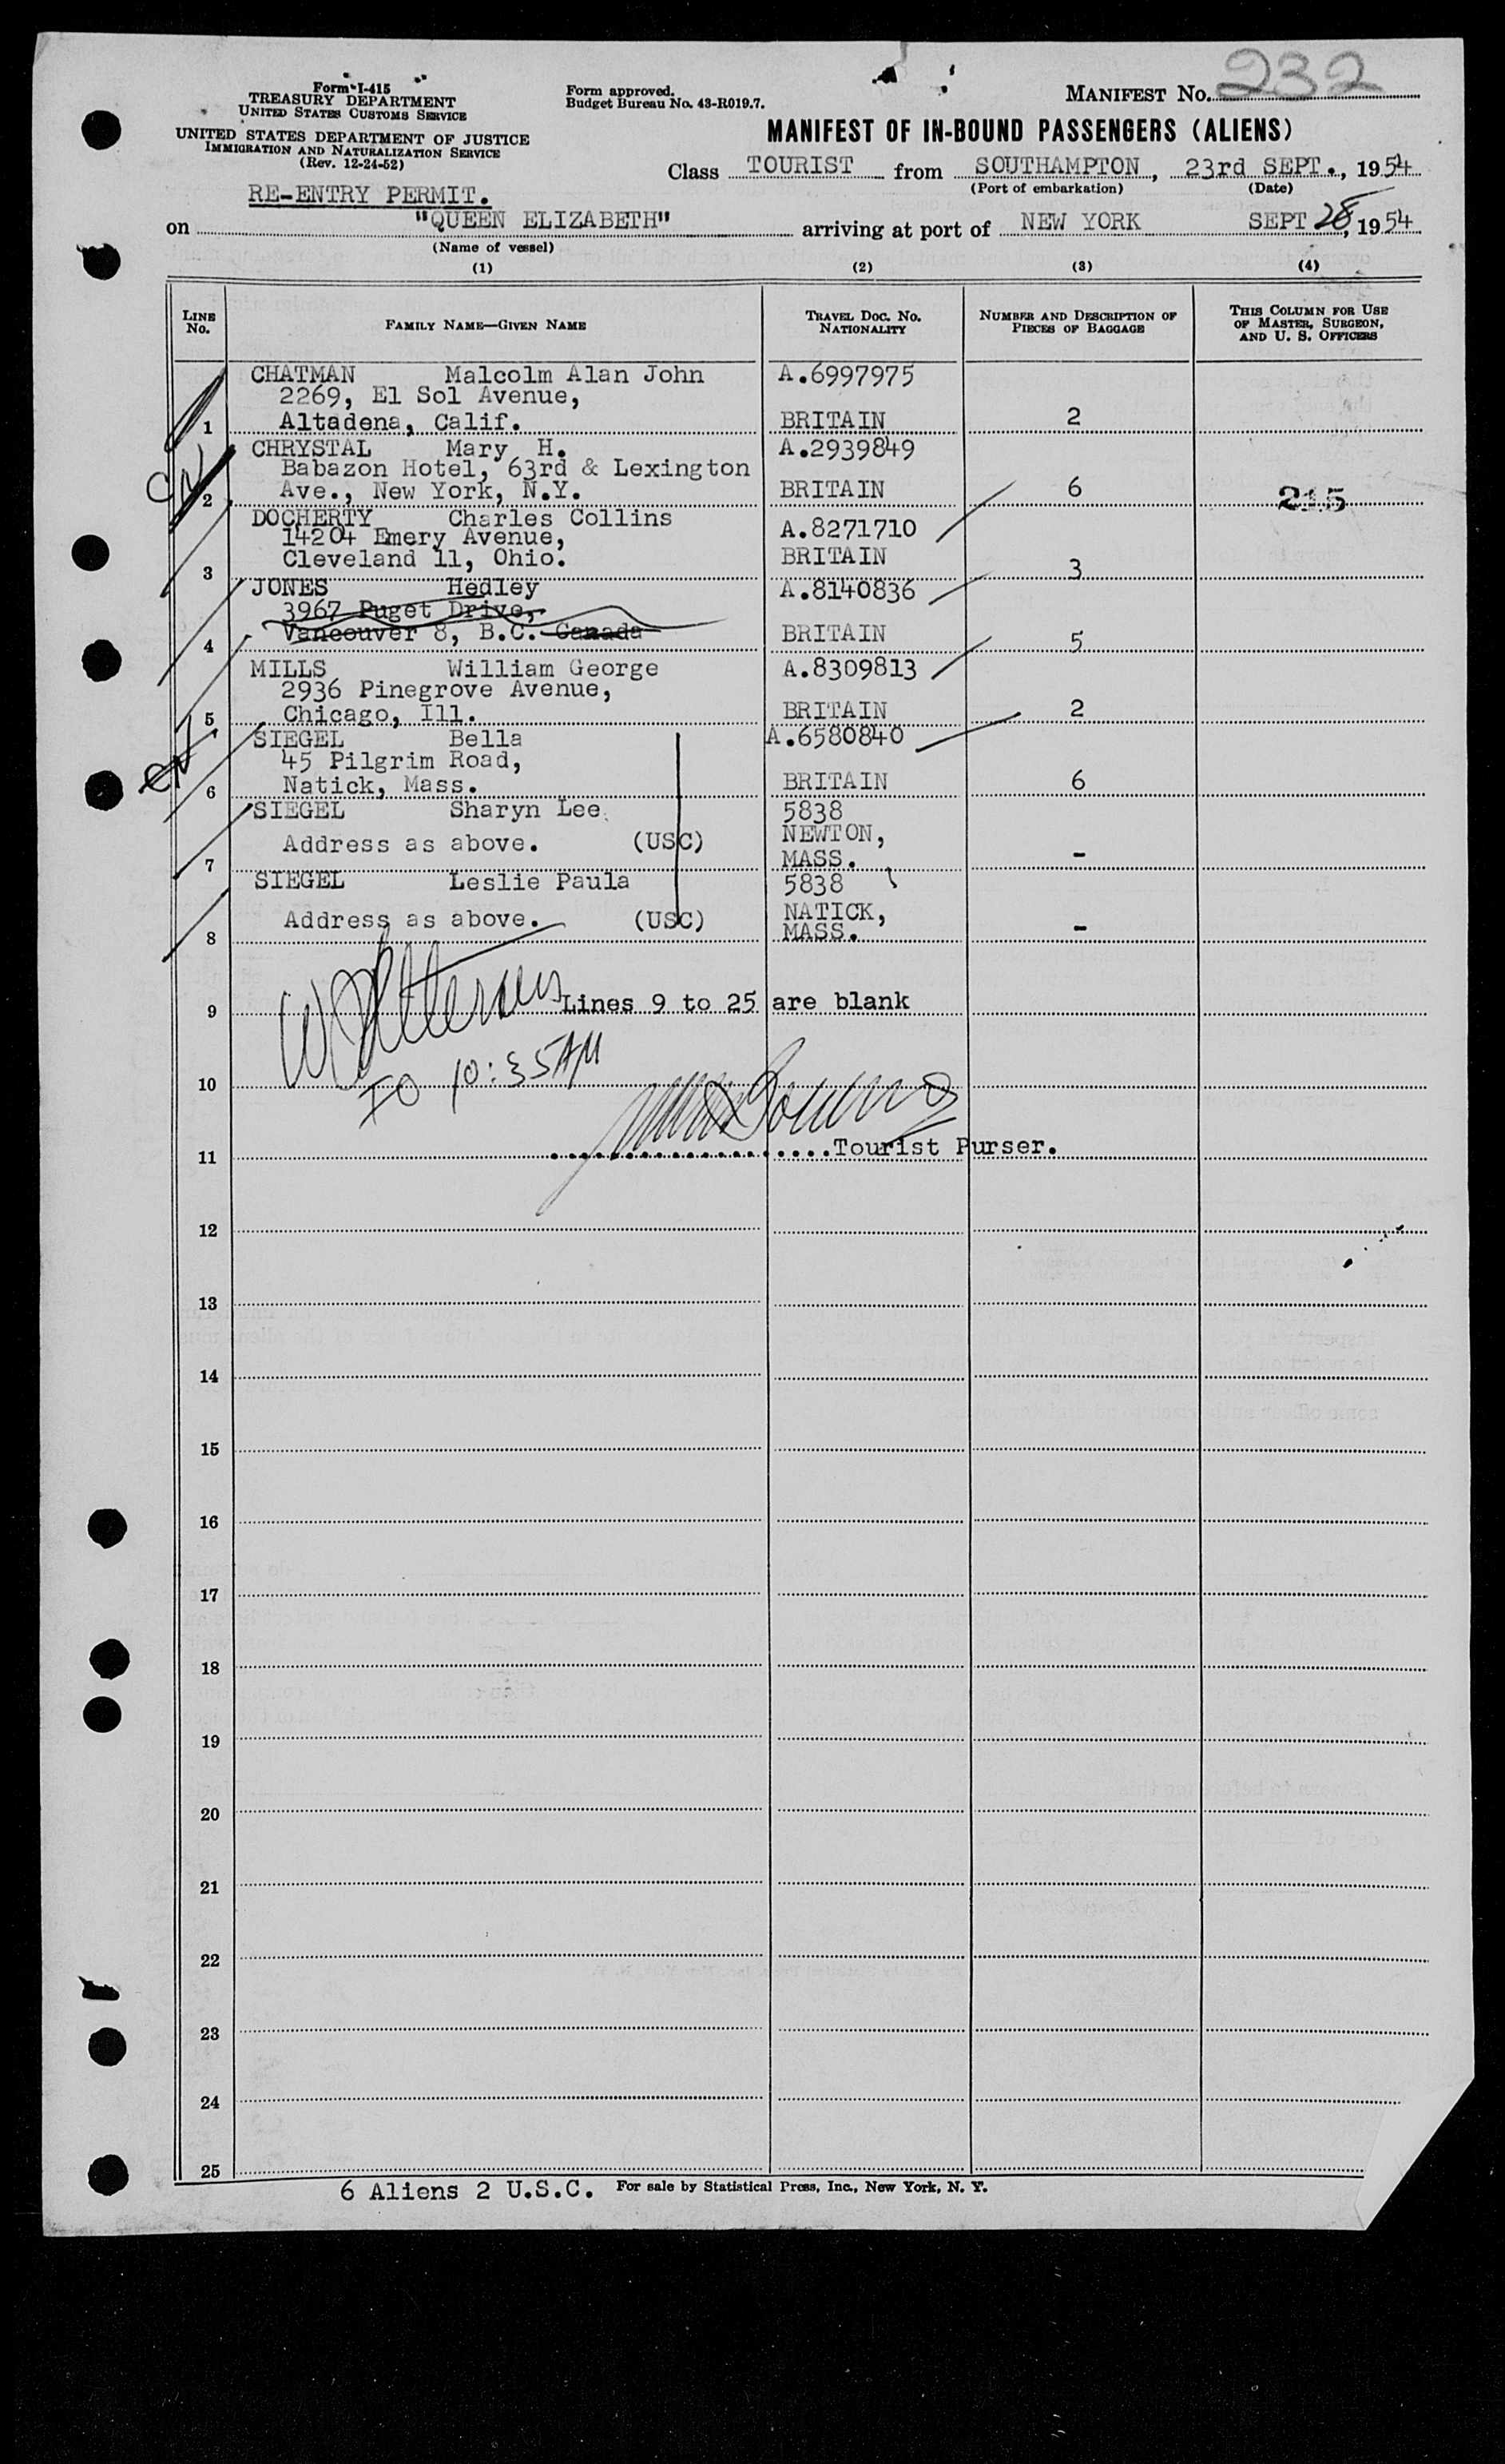 Form I-415
TREASURY DEPARTMENT
UNITED STATES CUSTOMS SERVICE
UNITED STATES DEPARTMENT OF JUSTICE
IMMIGRATION AND NATURALIZATION SERVICE
(Rev. 12-24-52)
Form approved.
Budget Bureau No. 43-R019.7.
MANIFEST NO. 232
MANIFEST OF IN-BOUND PASSENGERS (ALIENS)
Class TOURIST from SOUTHAMPTON, 23rd SEPT., 1954
(Port of embarkation) (Date)
RE-ENTRY PERMIT.
on "QUEEN ELIZABETH" arriving at port of NEW YORK SEPT 28, 1954
(Name of vessel)
(1) (2) (3) (4)
LINE NO. FAMILY NAME—GIVEN NAME TRAVEL DOC. NO. NATIONALITY NUMBER AND DESCRIPTION OF PIECES OF BAGGAGE THIS COLUMN FOR USE OF MASTER, SURGEON, AND U. S. OFFICERS
CHATMAN Malcolm Alan John A.6997975
2269, El Sol Avenue,
1 Altadena, Calif. BRITAIN 2
CHRYSTAL Mary H. A.2939849
Babazon Hotel, 63rd & Lexington
2 Ave., New York, N.Y. BRITAIN 6 215
DOCHERTY Charles Collins A.8271710
14204 Emery Avenue,
3 Cleveland 11, Ohio. BRITAIN 3
JONES Hedley A.8140836
3967 Puget Drive,
4 Vancouver 8, B.C. Canada BRITAIN 5
MILLS William George A.8309813
2936 Pinegrove Avenue,
5 Chicago, Ill. BRITAIN 2
SIEGEL Bella A.6580840
45 Pilgrim Road,
6 Natick, Mass. BRITAIN 6
SIEGEL Sharyn Lee 5838
Address as above. (USC) NEWTON,
7 MASS. -
SIEGEL Leslie Paula 5838
Address as above. (USC) NATICK,
8 MASS. -
9 Lines 9 to 25 are blank
IO 10:35AM
10
11 Tourist Purser.
12
13
14
15
16
17
18
19
20
21
22
23
24
25
6 Aliens 2 U.S.C. For sale by Statistical Press, Inc., New York, N. Y.